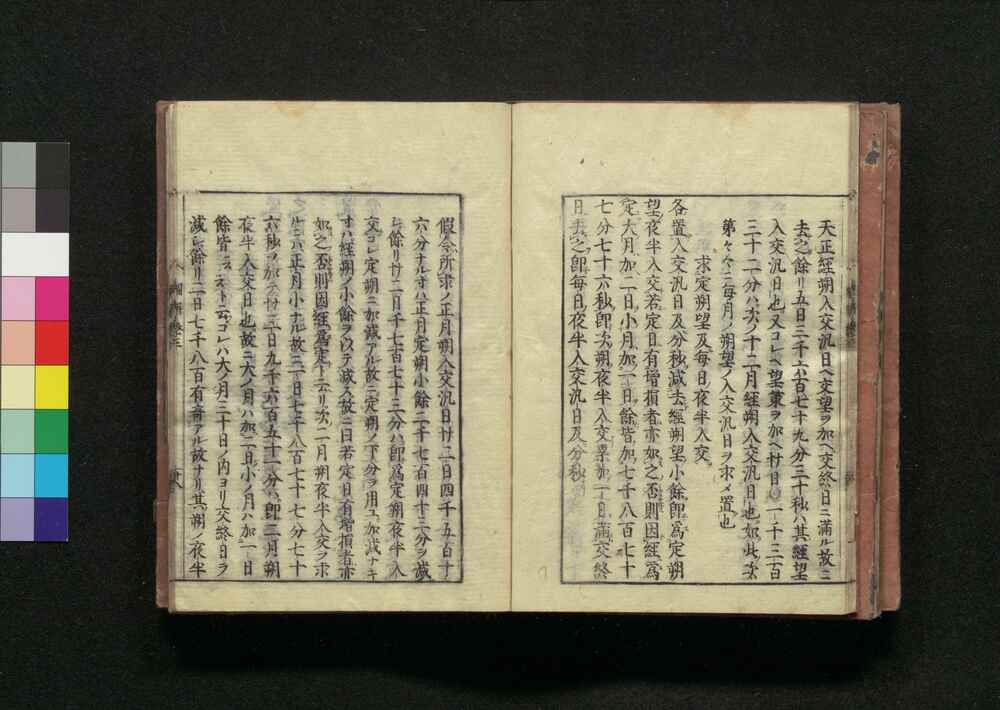 天正経朔入交汎日ヘ交望ヲ加ヘ交終日ニ満ル故ニ
去之餘リ五日三千六百七十九分三十秒ハ其經望
入交汎日也又コレヘ望策ヲ加ヘ廿日一千三百
三十二分ハ次ノ十二月經朔入交汎日也如此次
第々々ニ毎月ノ朔望ノ入交汎日ヲ求メ置也
求定朔望及每日夜半入交
各置入交汎日及分秒減去經朔望小餘卽爲定朔
望夜半入交若定日有增損者亦如之否則因經爲
定大月加二日小月加一日餘皆加七千八百七十
七分七十六秒卽次朔夜半入交累加一日滿交終
日去之卽每日夜半入交汎日及分秒
假令所求ノ正月朔入交汎日廿二日四千五百十
六分ナル寸ハ正月定朔小餘二千七百四十三分ヲ減
シ餘リ廿二日千七百七十三分ハ卽爲定朔夜半入
交コレ定朔ニ加減アル故ニ定朔ノ下分ヲ用ユ加減ナキ
寸ハ經朔ノ小餘ヲ以テ減ス故ニ曰若定日有增損者亦
如之否則因經爲定ト云リ次二月朔夜半入交ヲ求
ルニハ正月小ナル故ニ一日七千八百七十七分七十
六秒ヲ加テ廿三日九千六百五十一分ハ卽二月朔
夜半入交日也故ニ大ノ月ハ加二日小ノ月ハ加一日
餘皆云々ト云コレハ大ノ月三十日ノ内ヨリ交終日ヲ
減シ餘リ二日七千八百有奇アル故ナリ其朔ノ夜半